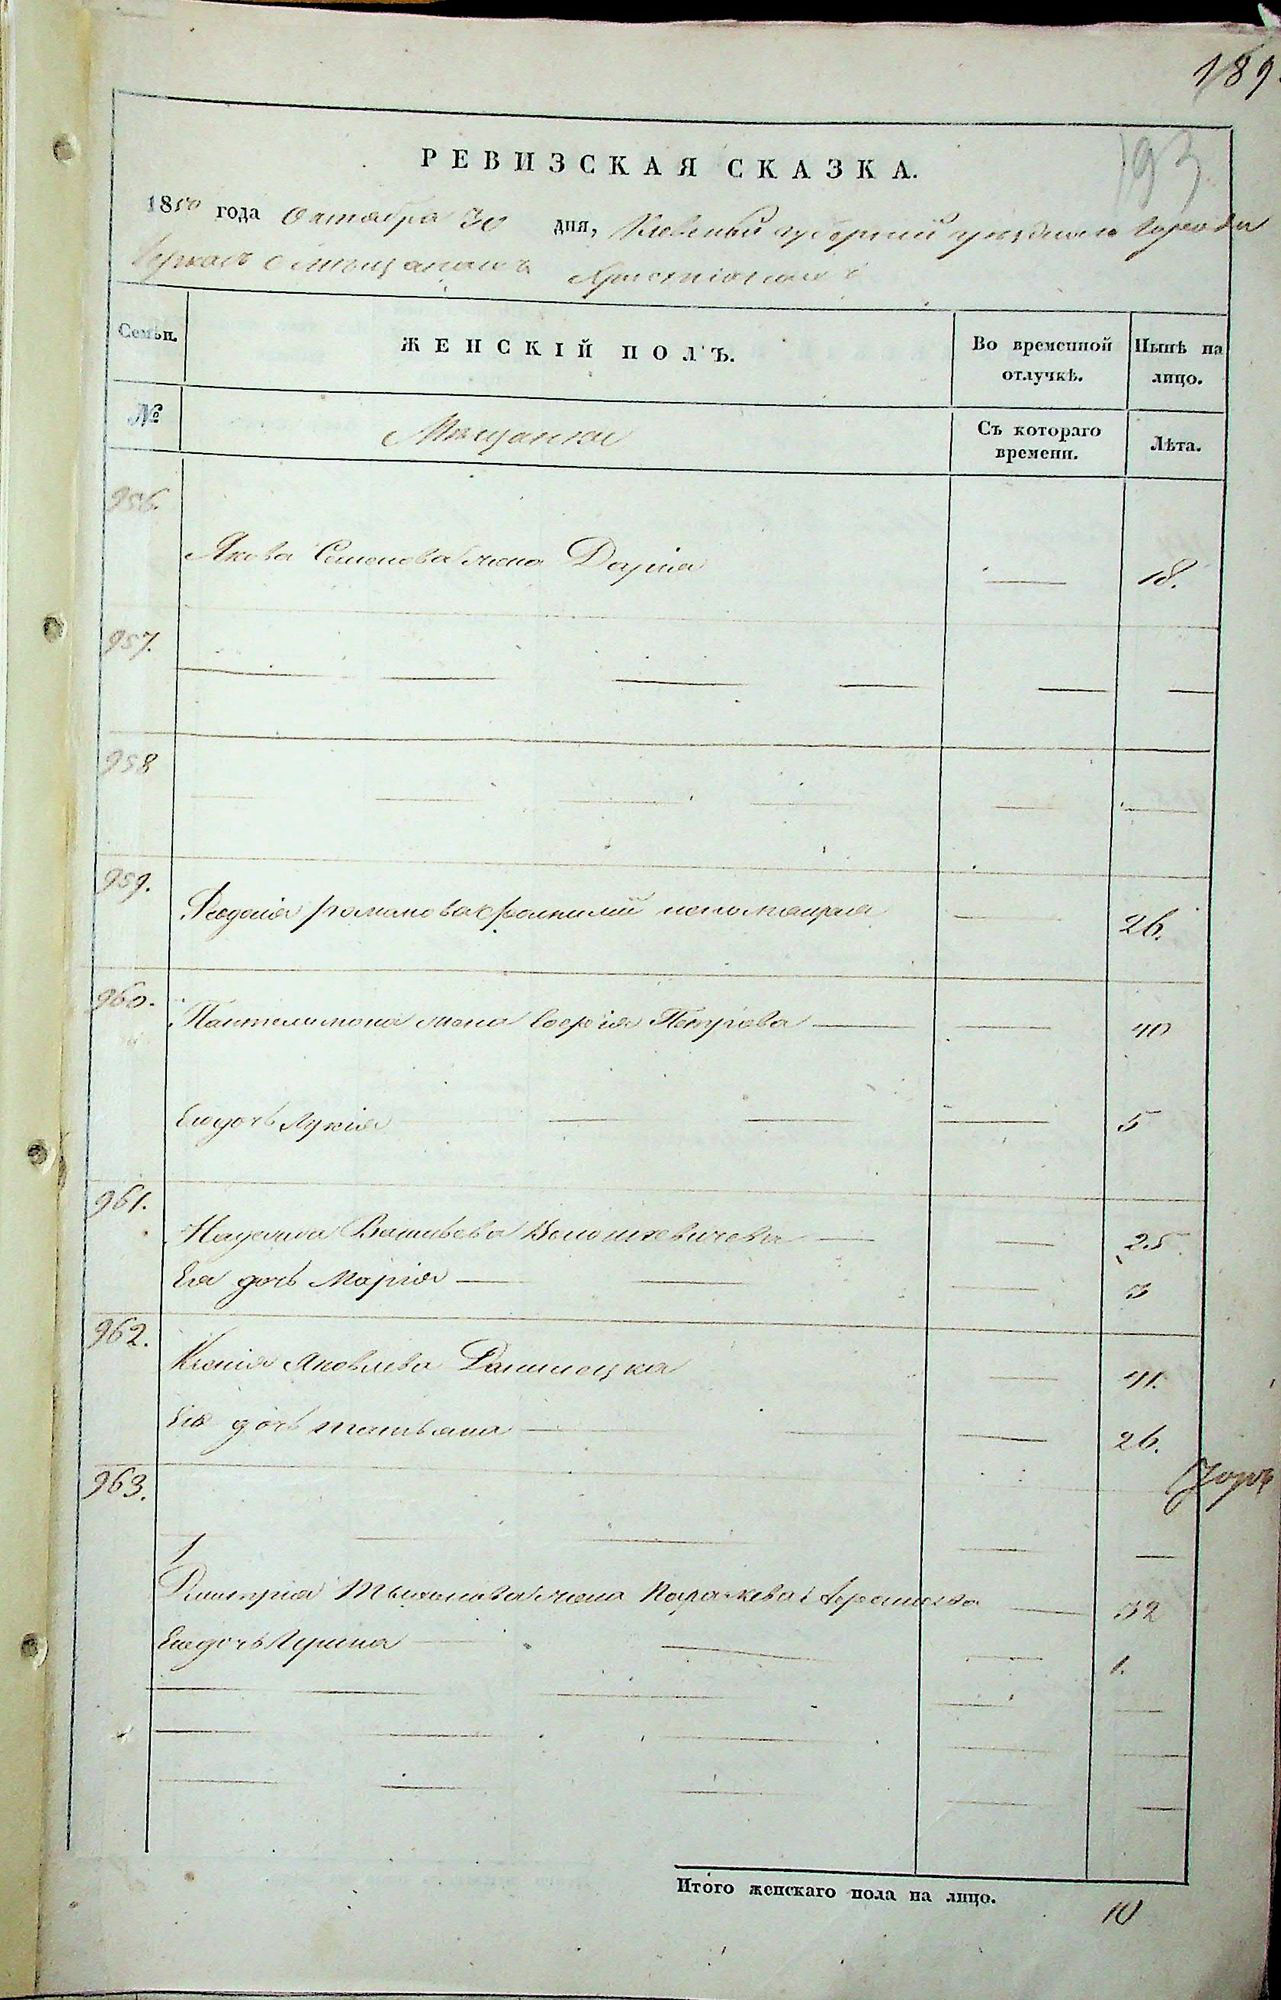 189
193
РЕВИЗСКАЯ СКАЗКА.
1850 года Октября 30 дня, Киевской губернии уезднаго города
Черкас о мещанах Христіанахъ
Семьи. ЖЕНСКІЙ ПОЛЪ. Во временной отлучкѣ. Нынѣ на лицо.
№ Мещанки Съ котораго времени. Лѣта.
956.
Якова Семенова жена Дарія — 18.
957.
958
959.
Феодосія Романова — 26.
960. Пантелимона жена Софія Петрова — 40
Ея дочь Лукія — 5
961.
Надежда Васильева — 25
Ея дочь Марія — 3
962.
Ксенія Яковлева — 41.
Ея дочь Татьяна — 26.
963.
1
Дмитрія жена Параскева — 32
Ея дочь Ирина — 1.
Итого женскаго пола на лицо. 10